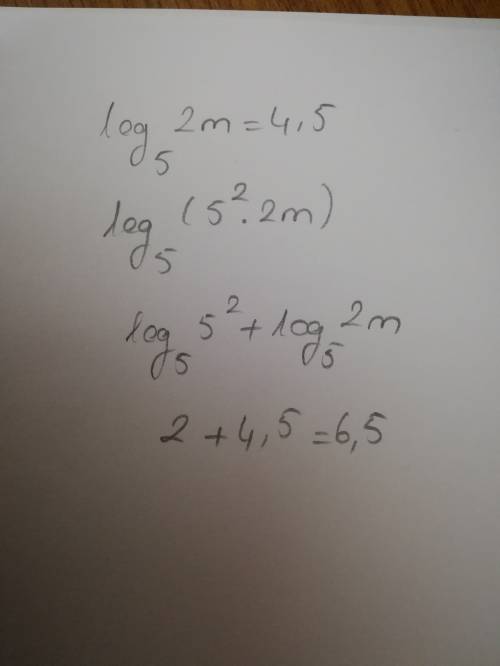 log₅ 2m = 4,5
log₅ (5² · 2m)
log₅ 5² + log₅ 2m
2 + 4,5 = 6,5